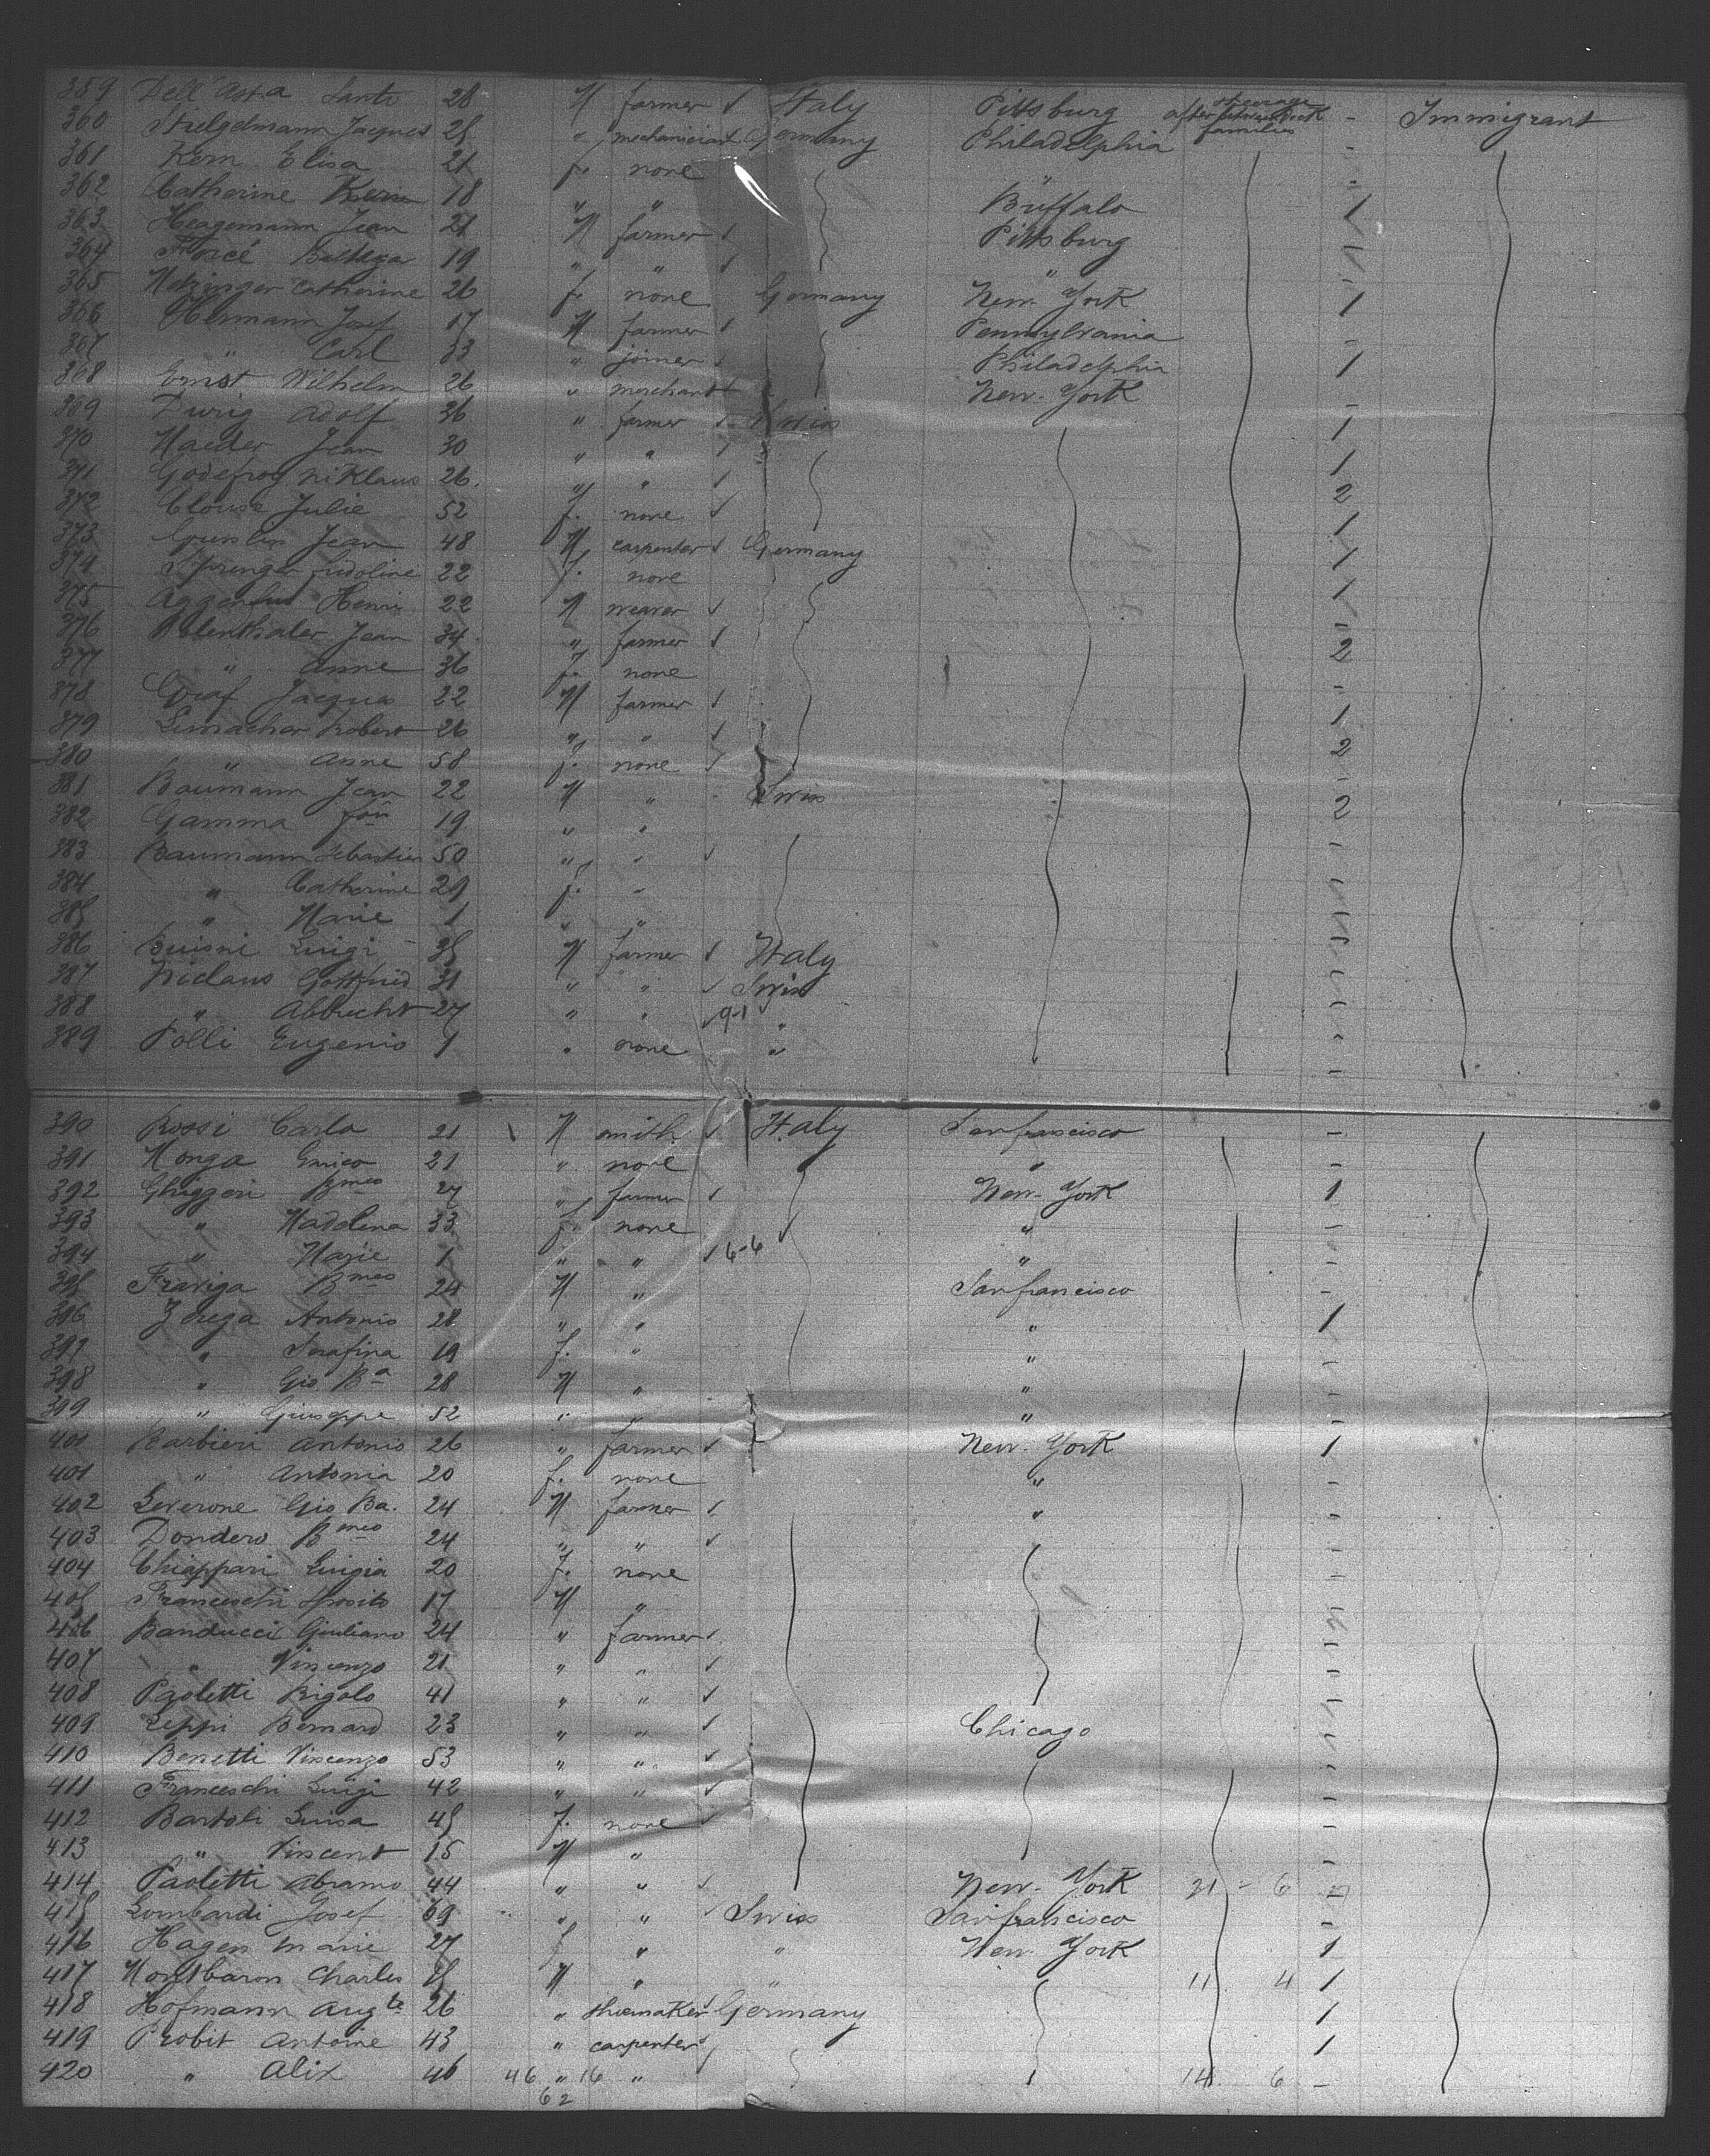 359 Dell'Asta Santo 28 M farmer Italy Pittsburg steerage after between deck families - Immigrant
360 Stielgelmann Jacques 25 " mechanician Germany Philadelphia -
361 Kern Elisa 21 f. none " -
362 Catherine Kern 18 " " Buffalo 1
363 Heagemann Jean 21 M farmer Pittsburg -
364 Baltezar 19 " " " -
365 Metzinger Catherine 26 f. none Germany New-York 1
366 Hermann Josef 17 M farmer Pennsylvania -
367 " Carl 33 " joiner Philadelphia 1
368 Ernst Wilhelm 26 " merchant New-York -
369 Durig Adolf 36 " farmer Swiss 1
370 Maeder Jean 30 " " 1
371 Godefroy Niklaus 26 " " 2
372 Julie 52 f. none 1
373 Jean 48 M carpenter Germany 1
374 Sprenger Fridoline 22 f. none 1
375 Henri 22 M weaver -
376 Jean 34 " farmer 2
377 " Anne 36 f. none -
378 Graf Jacques 22 M farmer 1
379 Robert 26 " " 2
380 " Anne 58 f. none -
381 Baumann Jean 22 M " Swiss 2
382 Gamma 19 " " -
383 Baumann Sebastien 50 " " -
384 " Catherine 29 f. " -
385 " Marie 1 " " -
386 Luigi 35 M farmer Italy -
387 Niclaus Gottfried 31 " " Swiss -
388 " Albrecht 27 " " 9-1 -
389 Polli Eugenio 1 " none " -
390 Rossi Carlo 21 M smith Italy Sanfrancisco -
391 Monga Enrico 21 " none " -
392 Ghiggeri Bmeo 27 " farmer New-York 1
393 " Madelena 33 f. none " -
394 " Marie 1 " " 6-6 " -
395 Fraviga Bmeo 24 M " Sanfrancisco -
396 Zerega Antonio 28 " " " 1
397 " Serafina 19 f. " " -
398 " Gio Ba 28 M " " -
399 " Giuseppe 52 " " " -
400 Barbieri Antonio 26 " farmer New-York 1
401 " Antonia 20 f. none " -
402 Leverone Gio Ba. 24 M farmer " -
403 Dondero Bmeo 24 " " -
404 Chiappari Luigia 20 f. none -
405 Franceschi Sposito 17 M " -
406 Banducci Giuliano 24 " farmer -
407 " Vincenzo 21 " " -
408 Paoletti Rigolo 41 " " -
409 Leppi Bernard 23 " " Chicago -
410 Benetti Vincenzo 53 " " -
411 Franceschi Luigi 42 " " -
412 Bartoli Luisa 45 f. none -
413 " Vincent 15 M " -
414 Paoletti Abramo 44 " " New-York 21 - 6 -
415 Lombardi Josef 69 " " Swiss Sanfrancisco -
416 Hagen Marie 27 f " " New-York 1
417 Montbaron Charles M " " 11 4 1
418 Hofmann Augte 26 " shoemaker Germany 1
419 Probit Antoine 43 " carpenter 1
420 " Alix 46 46 " 16 " 14 6 -
62